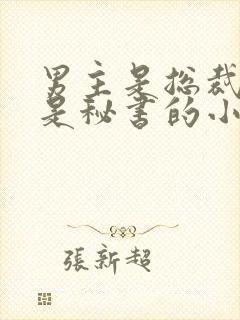 男主是总裁
是秘书的小
張新超